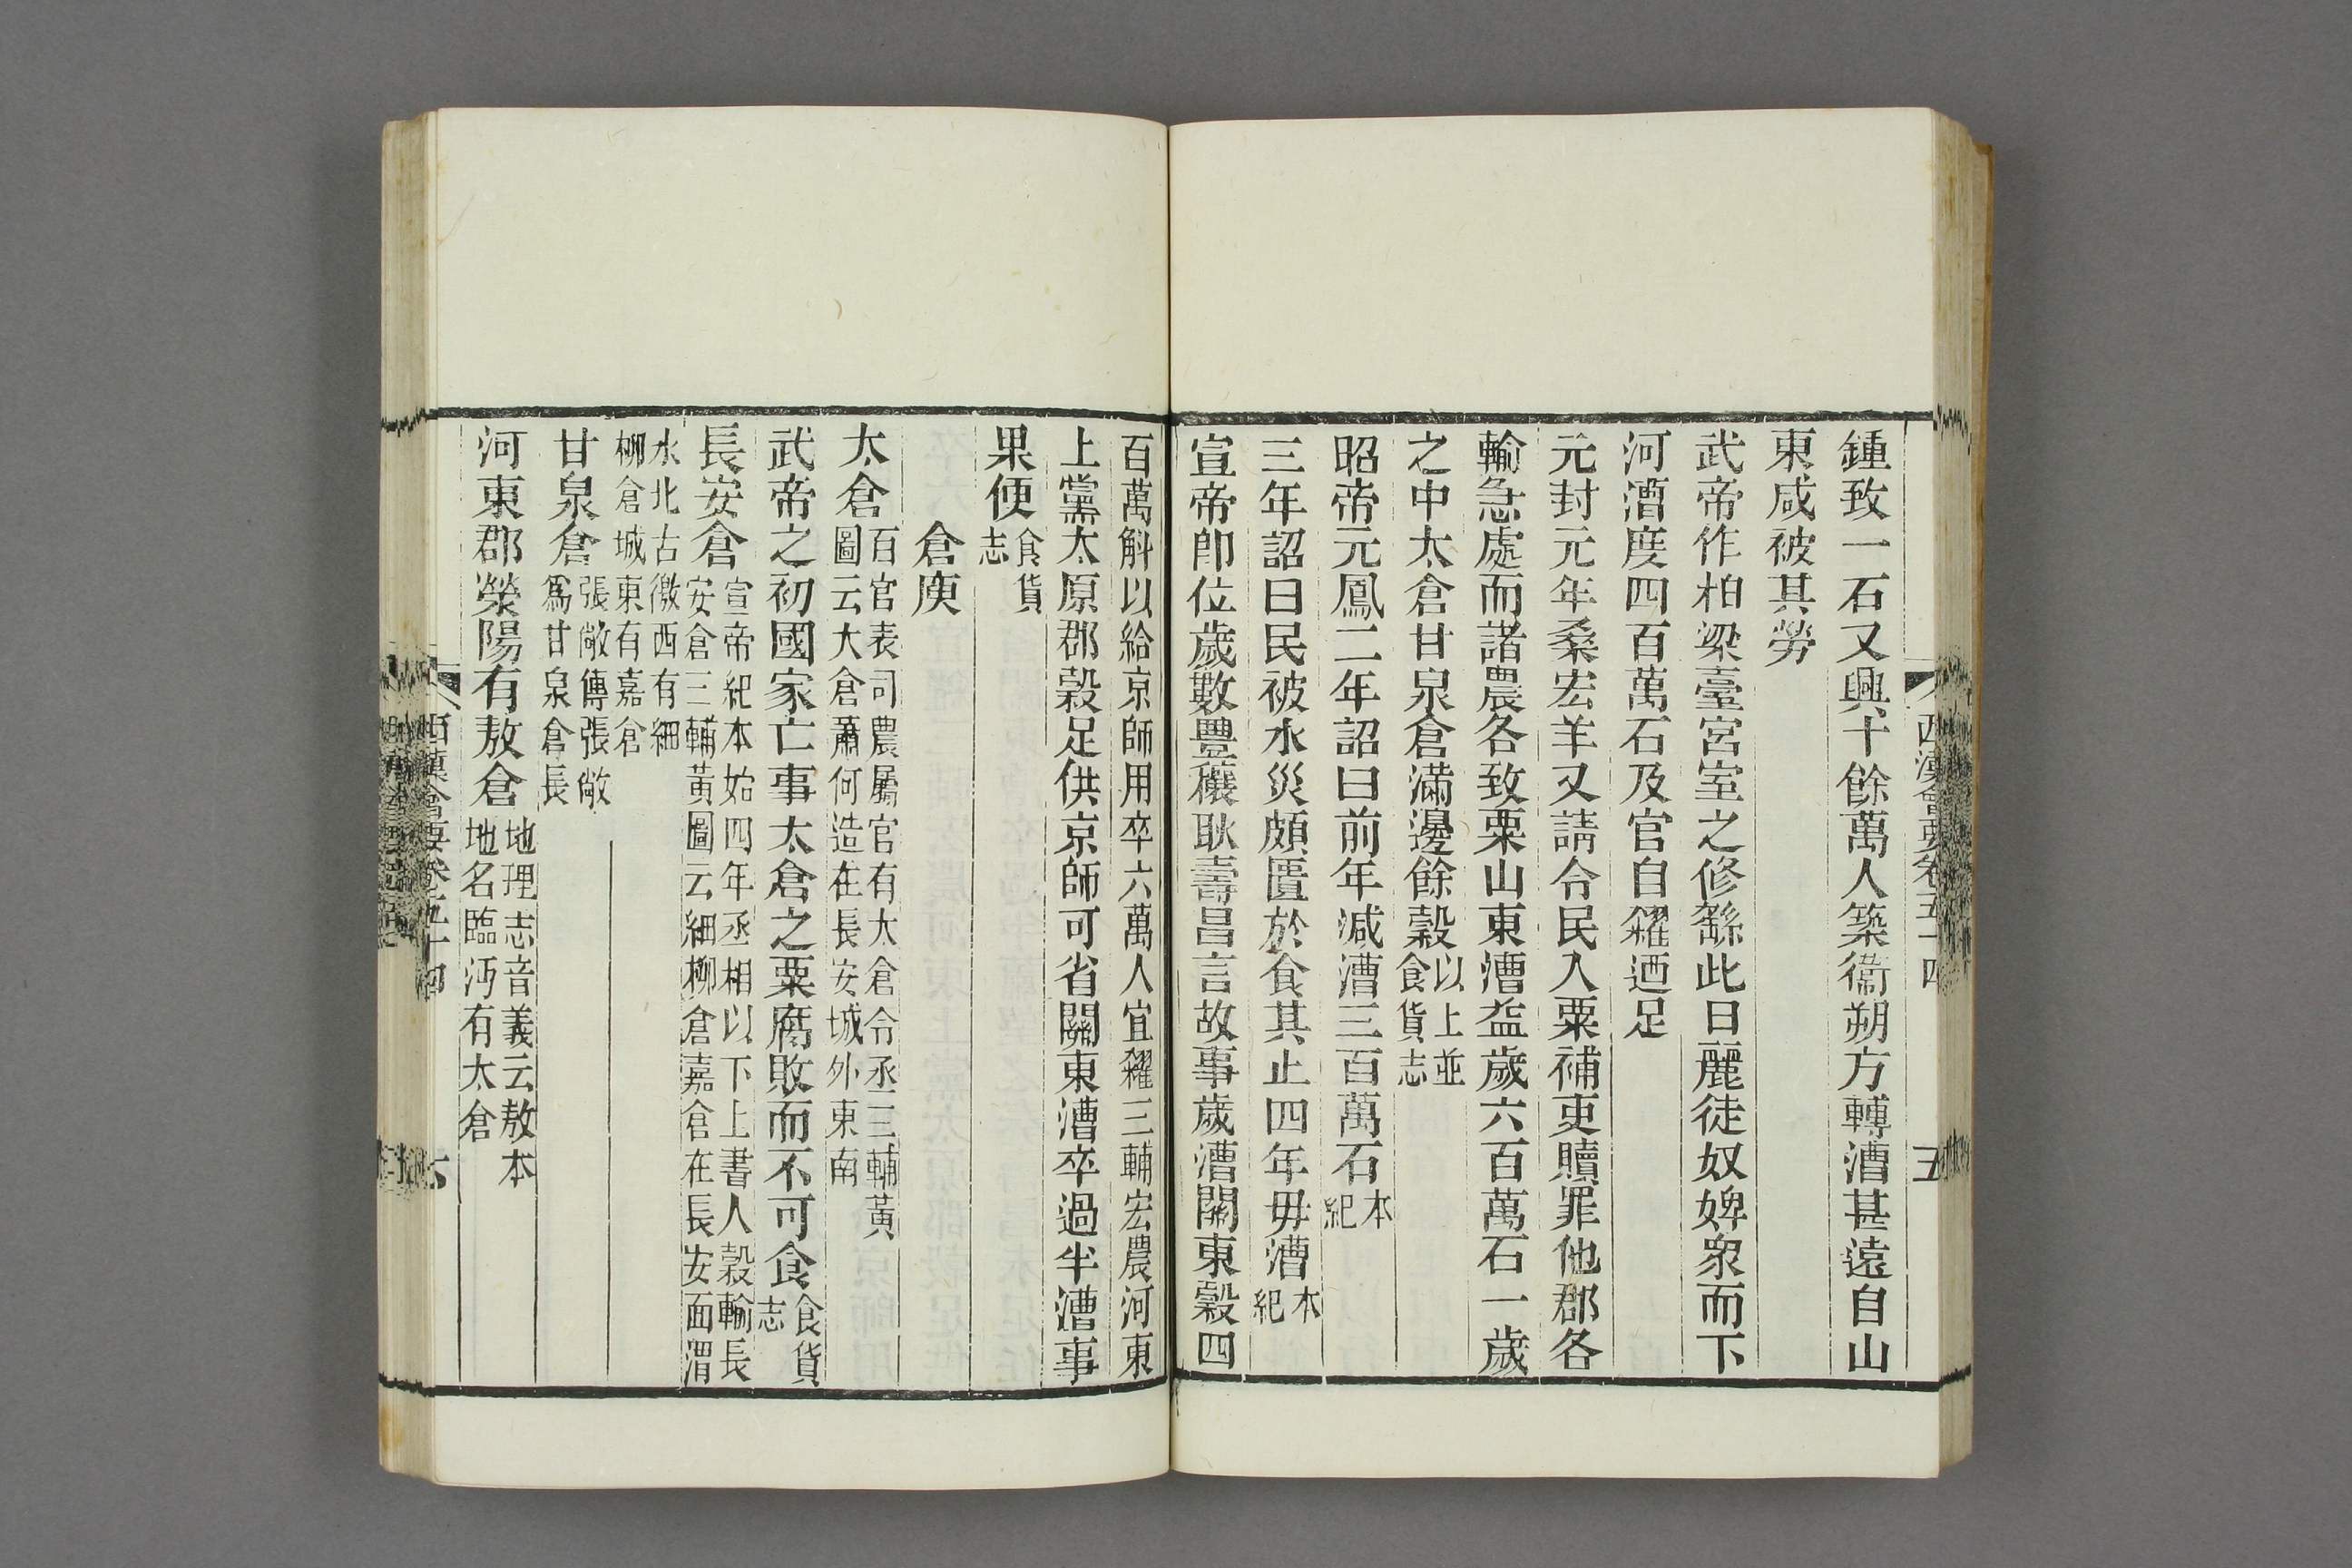 西漢會要卷五十四
五
鍾致一石又興十餘萬人築衞朔方轉漕甚遠自山
東咸被其勞
武帝作柏梁臺宮室之修繇此日麗徒奴婢衆而下
河漕度四百萬石及官自糴迺足
元封元年桑宏羊又請令民入粟補吏贖罪他郡各
輸急處而諸農各致粟山東漕益歲六百萬石一歲
之中太倉甘泉倉滿邊餘穀以上並食貨志
昭帝元鳳二年詔曰前年減漕三百萬石本紀
三年詔曰民被水災頗匱於食其止四年毋漕本紀
宣帝卽位歲數豐穰耿壽昌言故事歲漕關東穀四
百萬斛以給京師用卒六萬人宜糴三輔宏農河東
上黨太原郡穀足供京師可省關東漕卒過半漕事
果便食貨志
倉庾
太倉百官表司農屬官有太倉令丞三輔黃
圖云大倉蕭何造在長安城外東南
武帝之初國家亡事太倉之粟腐敗而不可食食貨志
長安倉宣帝紀本始四年丞相以下上書人穀輸長
安倉三輔黃圖云細柳倉嘉倉在長安面渭
水北古徼西有細
柳倉城東有嘉倉
甘泉倉張敞傳張敞
爲甘泉倉長
河東郡滎陽有敖倉地理志音義云敖本
地名臨沔有太倉
西漢會要卷五十四
六